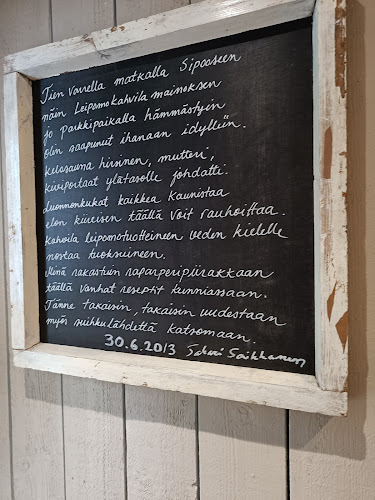 Tien varrella matkalla Sipooseen
näin Leipomokahvila mainoksen
jo parkkipaikalla hämmästyin
olin saapunut ihanaan idylliin.
kelosauna hirsinen, mutteri,
kiviportaat ylätasolle johdatti.
Luonnonkukat kaikkea kaunistaa
elon kiireisen täällä voit rauhoittaa.
Kahvila leipomotuotteineen veden kielelle
nostaa tuoksuineen.
Minä rakastuin raparperipiirakkaan
täällä vanhat reseptit kunniassaan.
Tänne takaisin, takaisin uudestaan
myös suihkulähdettä katsomaan.
30.6.2013